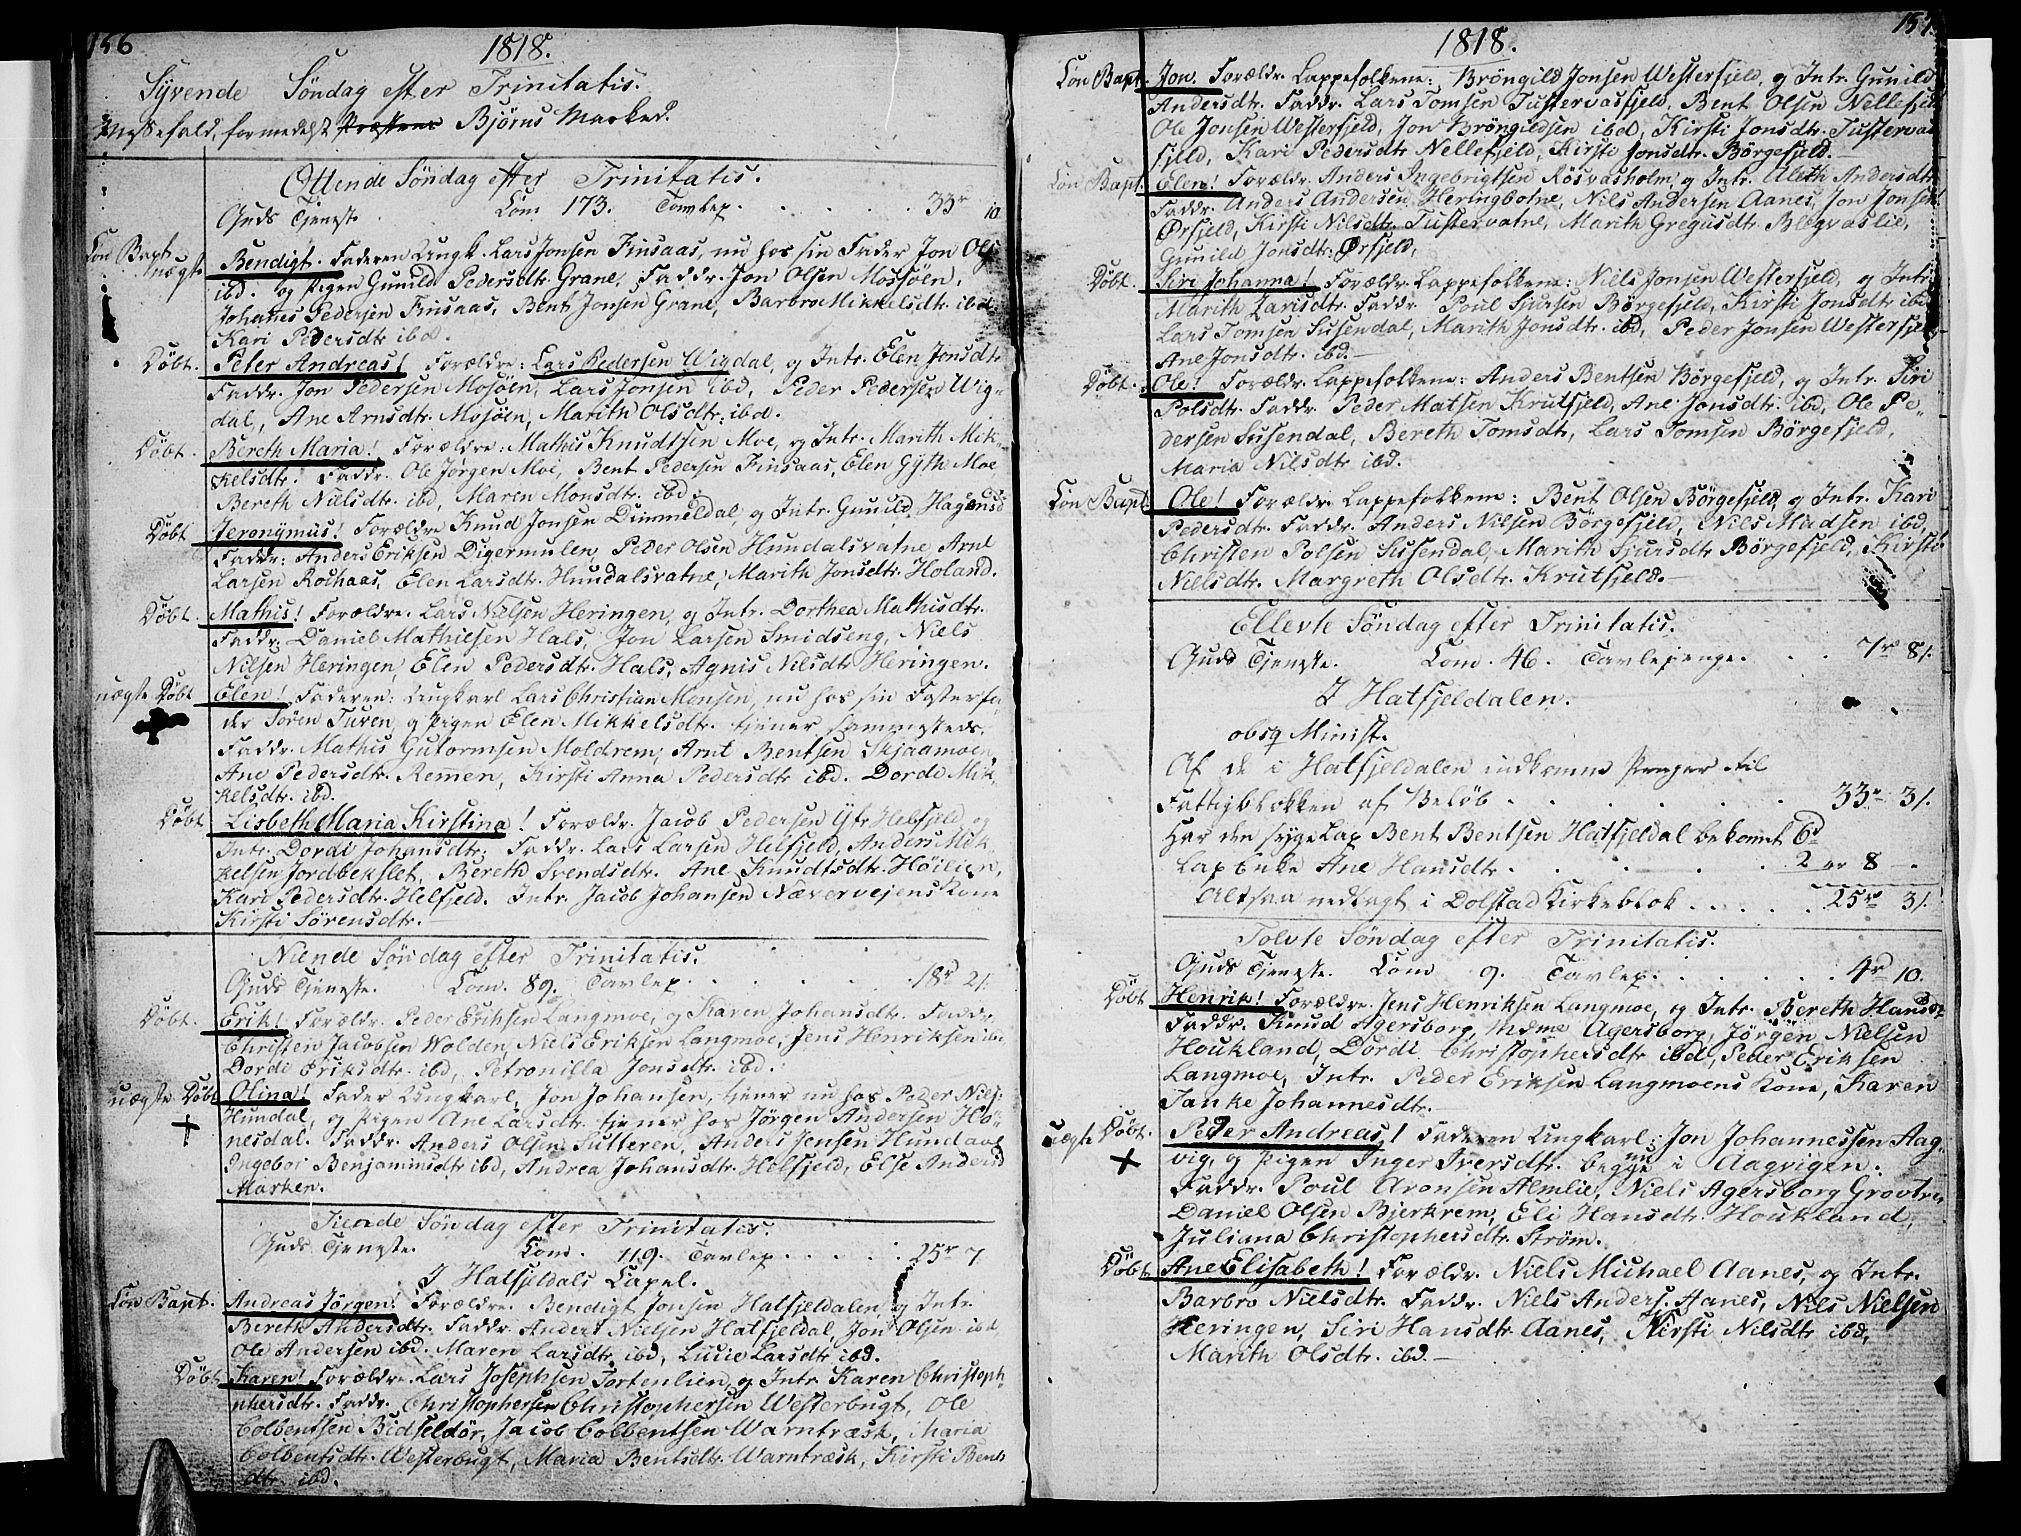 156
1818.
Syvende Søndag efter Trinitatis.
Messefald, formedelst Præstens Bjørns Marked.
Ottende Søndag efter Trinitatis.
Guds Tjeneste. Com 173. Tavlep. 33 r 10
Con Bapt. uægte Bendigt. Faderen Ungk. Lars Jonsen Finsaas, nu hos sin Fader Jon Ols
ibd. og Pigen Gunild Pedersdtr Grane. Faddr. Jon Olsen Mossøen,
Johanes Pedersen Finsaas, Bent Jonsen Grane, Barbro Mikkelsdtr ibd
Kari Pedersdtr ibd.
Døbt. Peter Andreas! Forældre: Lars Pedersen Wigdal, og Intr. Elen Jonsdtr
Faddr. Jon Pedersen Mosøen, Lars Jonsen ibd, Peder Pedersen Wig-
dal, Ane Arnsdtr. Mosøen, Marith Olsdtr. ibd.
Døbt. Bereth Maria! Forældre: Mathis Knudtsen Moe, og Intr. Marith Mik-
kelsdtr. Faddr. Ole Jørgen Moe, Bent Pedersen Finsaas, Elen Gyth Moe
Bereth Nielsdtr. ibd, Maren Monsdtr. ibd.
Døbt Jeronymus! Forældre Knud Jonsen Dimmeldal, og Intr. Gunild Hagensd
Faddr: Anders Eriksen Digermulen, Peder Olsen Hundalsvatne, Arnt
Larsen Rochaas, Elen Larsdtr. Hundalsvatne, Marith Jonsdtr. Holand.
Døbt. Mathis! Forældre. Lars Nielsen Heringen, og Intr. Dorthea Mathisdtr.
Faddr. Daniel Mathilsen Hals, Jon Larsen Smidseng, Niels
Nilsen Heringen, Elen Pedersdtr. Hals, Agnis Nilsdtr Heringen.
uægte Døbt Elen! Faderen: Ungkarl Lars Christian Monsen, nu hos sin Fosterfa-
der Søren Turen, og Pigen Elen Mikkelsdtr. tjener sammesteds.
Faddr. Mathis Gutormsen Moldrem, Arnt Bentsen Skjaamoen
Ane Pedersdtr. Remen, Kirsti Anna Pedersdtr ibd. Dorde Mik-
kelsdtr. ibd.
Døbt Lisbeth Maria Kirstina! Forældr. Jacob Pedersen Yfr Helfjeld og
Intr. Dordi Johansdtr. Faddr. Lars Larsen Helfjeld, Anders Mik-
kelsen Jordbekslet, Bereth Svendsdtr. Ane Knudtsdtr. Høilien,
Kari Pedersdtr. Helfjeld. Intr. Jacob Johansen Næverveiens Kone
Kirsti Sørensdtr.
Niende Søndag efter Trinitatis.
Guds Tjeneste. Com. 89. Tavlep. 18 r 2/.
Døbt. Erik! Forældr. Peder Eriksen Langmoe, og Karen Johansdtr. Faddr.
Christen Jacobsen Wolden, Niels Eriksen Langmoe, Jens Henriksen ibd,
Dorde Eriksdtr. ibd, Petronilla Jonsdtr. ibd.
uægte Døbt Olina! Fader Ungkarl, Jon Johansen, tjener nu hos Peder Nils:
Hundal, og Pigen Ane Larsdtr. tjener hos Jørgen Andersen Hø-
nesdal. Faddr. Anders Olsen Sutteren, Anders Jensen Hundaal
Ingebor Benjaminsdtr ibd, Andrea Johansdtr. Helfjeld, Else Andersd
Marken.
Tiende Søndag efter Trinitatis.
Guds Tjeneste. Com. 119. Tavlep. 25 r 7
I Hatfjeldals Capel.
Con Bapt. Andreas Jørgen! Forældre. Bendigt Jonsen Hatfjeldalen, og Intr.
Bereth Andersdtr. Faddr. Anders Nielsen Hatfjeldal, Jon Olsen ibd
Ole Andersen ibd. Maren Larsdtr ibd, Lucie Larsdtr ibd.
Døbt Karen! Forældre. Lars Josephsen Tortenlien, og Intr Karen Christoph-
phersdtr. Faddr. Christophersen Christophersen Westerbugt, Ole
Colbentsen Bidseldør, Jacob Colbentsen Warntræsk, Maria
Colbentsdtr. Westerbugt, Maria Bentsdtr Warntræsk, Kirsti Bents
dtr ibd.
157
1818.
Con Bapt. Jon. Forældr. Lappefolkene: Brøngild Jonsen Westerfjeld, og Intr. Gunild
Andersdtr. Faddr. Lars Tomsen Tustervasfjeld, Bent Olsen Nellefjeld
Ole Jonsen Westerfjeld, Jon Brøngildsen ibd, Kirsti Jonsdtr. Tustervas
fjeld, Kari Pedersdtr Nellefjeld, Kirsti Jonsdtr. Børgefjeld.
Con Bapt. Elen! Forældr. Anders Ingebrigtsen Røsvasholm, og Intr. Aleth Andersdtr
Faddr. Anders Andersen Heringbotne, Nils Andersen Aanes, Jon Jonsen
Ørfjeld, Kirsti Nilsdtr. Tustervatne, Marith Gregusdtr Blegvaslie,
Gunild Jonsdtr. Ørfjeld,
Døbt. Siri Johanna! Forældr. Lappefolkene: Nills Jonsen Westerfjeld, og Intr.
Marith Larisdtr. Faddr. Poul Sjursen Børgefjeld, Kirsti Jonsdtr ibd
Lars Tomsen Susendal, Marith Jonsdtr. ibd, Peder Jonsen Westerfjeld
Ane Jonsdtr. ibd.
Døbt. Ole! Forældr. Lappefolkene: Anders Bentsen Børgefjeld, og Intr. Siri
Polsdtr. Faddr. Peder Matsen Krutfjeld, Ane Jonsdtr. ibd, Ole Pe-
dersen Susendal, Bereth Tomsdtr, Lars Tomsen Børgefjeld,
Maria Nilsdtr ibd.
Con Bapt Ole! Forældr. Lappefolkene: Bent Olsen Børgefjeld, og Intr. Kari
Pedersdtr. Faddr. Anders Nilsen Børgefjeld, Nils Madsen ibd,
Christen Polsen Susendal, Marith Sjursdtr Børgefjeld, Kirsti
Nielsdtr. Margreth Olsdtr. Krutfjeld.
Ellevte Søndag efter Trinitatis.
Guds Tjeneste. Com. 46. Tavlepenge. 7 r 8/.
I Hatfjeldalen.
obsq Minist.
Af de i Hatfjeldalen indkomne Penger til
Fattigblokken af Beløb 33 r 3/.
Har den syge Lap Bent Bentsen Hatfjeldal bekomet 6 d
Lap Enke Ane Hansdtr. 2 er 8
Altsaa nedlagt i Dolstad Kirkeblok 25 r 3/.
Tolvte Søndag efter Trinitatis.
Guds Tjeneste. Com 9. Tavlep. 4 r 10.
Døbt Henrik! Forældre. Jens Henriksen Langmoe, og Intr. Bereth Hansd.
Faddr. Knud Agersborg, Mdme Agersborg, Jørgen Nielsen
Houkland, Dordi Christophersdtr ibd, Peder Eriksen
Langmoe, Intr. Peder Eriksen Langmoens Kone, Karen
Tanke Johannesdtr.
uægte Døbt. Peder Andreas! Faderen Ungkarl: Jon Johannessen Aag-
vig, og Pigen Inger Iversdtr. begge nu i Aagvigen.
Faddr. Poul Aronsen Almlie, Niels Agersborg Grovtr
Daniel Olsen Bjerkrem, Eli Hansdtr. Houkland,
Juliana Christophersdtr. Strøm.
Døbt Ane Elisabeth! Forældr. Niels Michael Aanes, og Intr.
Barbro Nielsdtr. Faddr. Niels Anders. Aanes, Nils Nielsen
Heringen, Siri Hansdtr Aanes, Kirsti Nilsdtr ibd,
Marith Olsdtr. ibd.